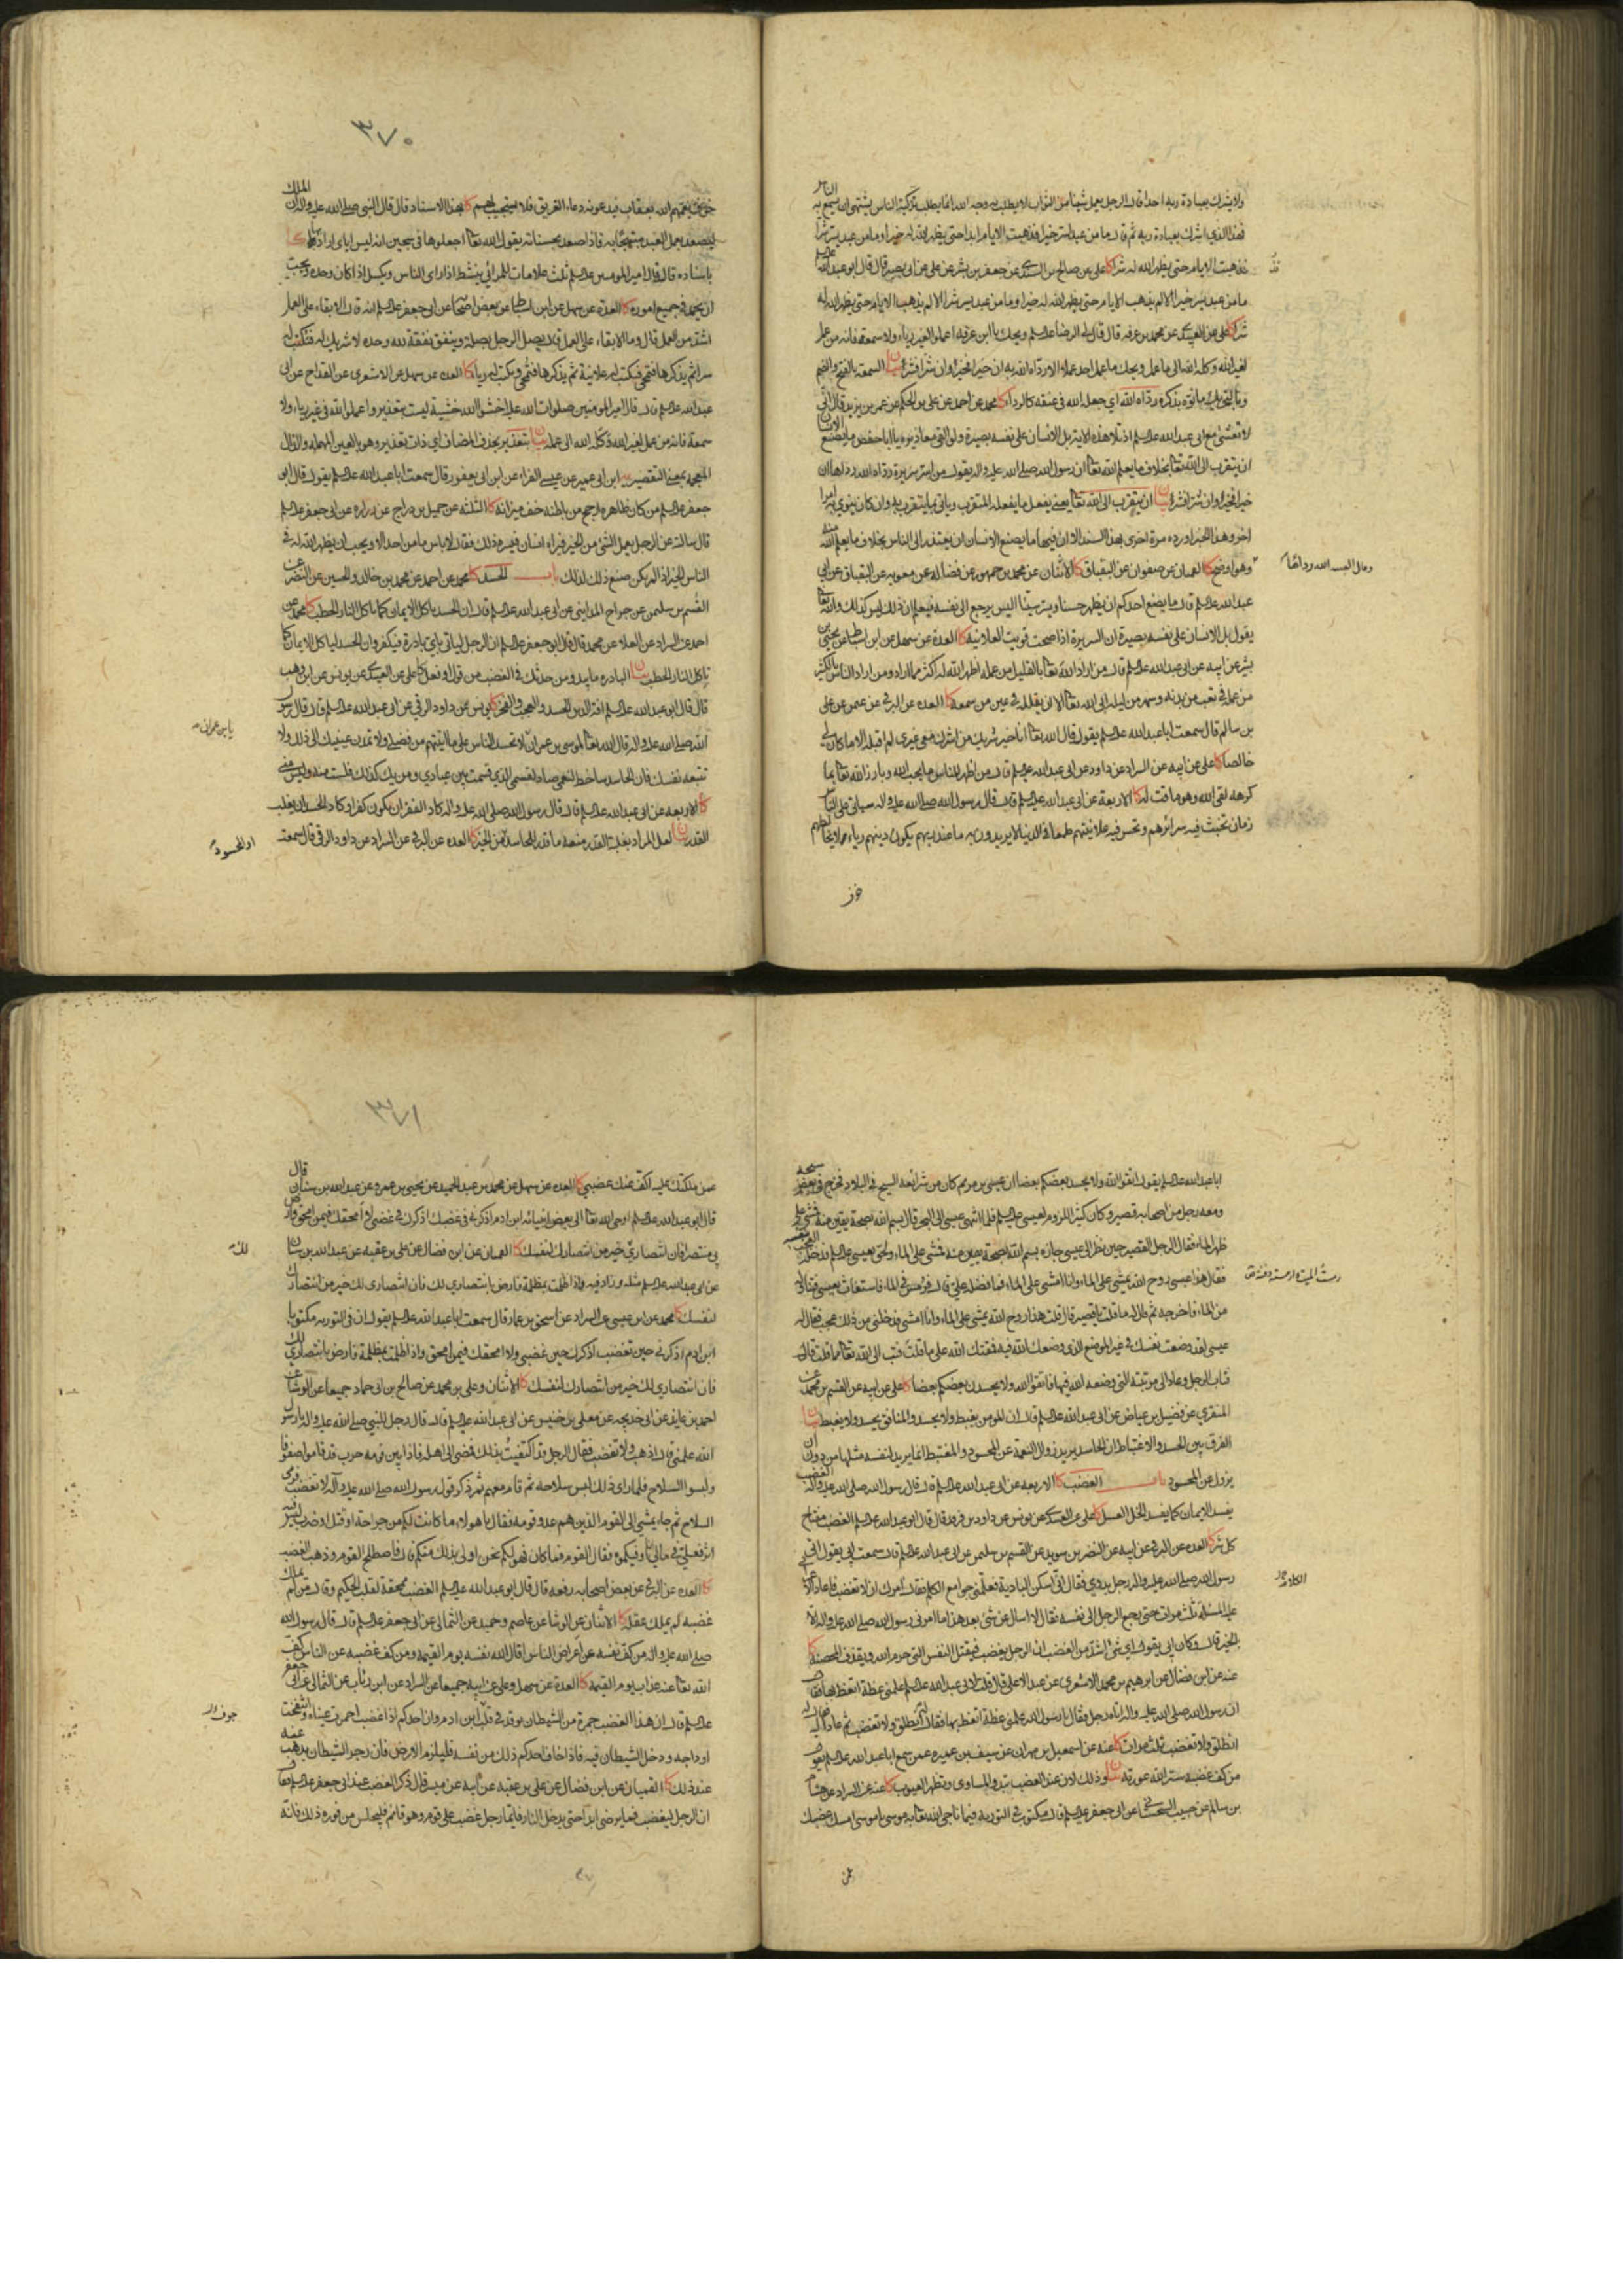 ولا يشرك بعبادة ربه احدا قال الرجل يعمل شيئا من الثواب لا يطلب به وجه الله انما يطلب تزكية الناس يشتهي ان يسمع به الناس
فهذا الذي اشرك بعبادة ربه ثم قال ما من عبد اسر خيرا فذهبت الايام ابدا حتى يظهر الله له خيرا وما من عبد يسر شرا
فذهبت الايام حتى يظهر الله له شرا كا علي عن صالح بن السندي عن جعفر بن بشير عن علي عن ابي بصير قال قال ابو عبد الله
ما من عبد يسر خيرا الا لم يذهب الايام حتى يظهر الله له خيرا وما من عبد يسر شرا الا لم يذهب الايام حتى يظهر الله له
شرا كا علي عن العبيدي عن محمد بن عرفه قال قال لي الرضا ويحك يا ابن عرفه اعملوا لغير رياء ولا سمعة فانه من عمل
لغير الله وكله الله الى ما عمل ويحك ما عمل احد عملا الا رداه الله به ان خيرا فخيرا وان شرا فشرا بيان السمعة بالفتح والضم
وبالتحريك ما نوه بذكره رداه الله اي جعله الله في عنقه كالرداء كا محمد عن احمد عن علي بن الحكم عن عمر بن يزيد قال اني
لاتعشى مع ابي عبد الله اذ تلا هذه الاية بل الانسان على نفسه بصيرة ولو القى معاذيره يا ابا حفص ما يصنع الانسان
ان يتقرب الى الله بخلاف ما يعلم الله ان رسول الله صلى الله عليه واله يقول من اسر سريرة رداه الله رداها ان
خيرا فخيرا وان شرا فشرا بيان ان يتقرب الى الله يعني يفعل ما يفعله المتقرب وياتي بما يتقرب به وان كان ينوي به امرا
اخر وهذا الخبر اورده مرة اخرى بهذا السند الا ان فيها ما يصنع الانسان ان يعتذر الى الناس بخلاف ما يعلم الله منه
وهو اوضح كا القميان عن صفوان عن البقباق كا الاثنان عن محمد بن جمهور عن فضاله عن معويه عن البقباق عن ابي
عبد الله قال ما يصنع احدكم ان يظهر حسنا ويسر سيئا اليس يرجع الى نفسه فيعلم ان ذلك ليس كذلك والله
يقول بل الانسان على نفسه بصيرة ان السريرة اذا صحت قويت العلانية كا العدة عن سهل عن ابن اسباط عن يحيى بن
بشير عن ابيه عن ابي عبد الله قال من اراد الله بالقليل من عمله اظهر الله له اكثر مما اراد ومن اراد الناس بالكثير
من عمله في تعب من بدنه وسهر من ليله ابى الله الا ان يقلله في عين من سمعه كا العدة عن البرقي عن عثمن عن علي
بن سالم قال سمعت ابا عبد الله يقول قال الله انا خير شريك من اشرك معي غيري لم اقبله الا ما كان لي
خالصا كا علي عن ابيه عن السراد عن داود عن ابي عبد الله قال من اظهر للناس ما يحب الله وبارز الله بما
كرهه لقي الله وهو ماقت له كا الاربعة عن ابي عبد الله قال قال رسول الله صلى الله عليه واله سياتي على الناس
زمان تخبث فيه سرائرهم وتحسن فيه علانيتهم طمعا في الدنيا لا يريدون به ما عند ربهم يكون دينهم رياء لا يخالطهم
٣٧٠
خوف يعمهم الله بعقاب فيدعونه دعاء الغريق فلا يستجيب لهم كا بهذا الاسناد قال قال النبي صلى الله عليه واله ان الملك
ليصعد بعمل العبد مبتهجا به فاذا صعد بحسناته يقول الله اجعلوها في سجين انه ليس اياي اراد بها كا
باسناده قال قال امير المومنين ثلث علامات للمرائي ينشط اذا راى الناس ويكسل اذا كان وحده ويحب
ان يحمد في جميع اموره كا العدة عن سهل عن ابن اسباط عن بعض اصحابنا عن ابي جعفر انه قال الابقاء على العمل
اشد من العمل قال وما الابقاء على العمل قال يصل الرجل بصلة وينفق نفقة لله وحده لا شريك له فتكتب له
سرا ثم يذكرها فتمحى فيكتب له علانية ثم يذكرها فتمحى وتكتب له رياء كا العده عن سهل عن الاشعري عن القداح عن ابي
عبد الله قال قال امير المومنين صلوات الله عليه اخشوا الله خشية ليست بتعذير واعملوا لله في غير رياء ولا
سمعة فانه من عمل لغير الله وكله الله الى عمله بيان بتعذير بحذف المضاف اي ذات تعذير وهو بالعين المهملة والذال
المعجمة بمعنى التقصير يه ابن ابي عمير عن عيسى الفراء عن ابن ابي يعفور قال سمعت ابا عبد الله يقول قال ابو
جعفر من كان ظاهره ارجح من باطنه خف ميزانه كا الثلثه عن جميل بن دراج عن زراره عن ابي جعفر
قال سالته عن الرجل يعمل الشي من الخير فيراه انسان فيسره ذلك فقال لا باس ما من احد الا ويحب ان يظهر الله له في
الناس الخير اذا لم يكن صنع ذلك لذلك باب الحسد كا محمد عن احمد عن محمد بن خالد والحسين عن النضر عن
القسم بن سليمن عن جراح المدايني عن ابي عبد الله قال ان الحسد ياكل الايمان كما تاكل النار الحطب كا محمد عن
احمد عن السراد عن العلاء عن محمد قال قال ابو جعفر ان الرجل لياتي باي بادرة فيكفر وان الحسد لياكل الايمان كما
تاكل النار الحطب بيان البادره ما يبدو من حدتك في الغضب من قول او فعل كا علي عن العبيدي عن يونس عن ابن وهب
قال قال ابو عبد الله افة الدين الحسد والعجب والفخر كا يونس عن داود الرقي عن ابي عبد الله قال قال رسول
الله صلى الله عليه واله قال الله لموسى بن عمران لا تحسد الناس على ما اتيتهم من فضلي ولا تمدن عينيك الى ذلك ولا
تتبعه نفسك فان الحاسد ساخط لنعمي صاد لقسمي الذي قسمت بين عبادي ومن يك كذلك فلست منه وليس مني
كا الاربعه عن ابي عبد الله قال قال رسول الله صلى الله عليه واله كاد الفقر ان يكون كفرا وكاد الحسد ان يغلب
القدر بيان لعل المراد بغلبة القدر منعه ما قدر للحاسد من الخير كا العده عن البرقي عن السراد عن داود الرقي قال سمعت
يا ابن عمران
او المحسود
ابا عبد الله يقول اتقوا الله ولا يحسد بعضكم بعضا ان عيسى بن مريم كان من شرائعه السيح في البلاد فخرج في بعض سيحه
ومعه رجل من اصحابه قصير وكان كثير اللزوم لعيسى فلما انتهى عيسى الى البحر قال بسم الله بصحة يقين منه فمشى على
ظهر الماء فقال الرجل القصير حين نظر الى عيسى جازه بسم الله بصحة يقين منه فمشى على الماء ولحق بعيسى فدخله العجب بنفسه
فقال هذا عيسى روح الله يمشي على الماء وانا امشي على الماء فما فضله علي قال فرمس في الماء فاستغاث بعيسى فتناوله
من الماء فاخرجه ثم قال له ما قلت يا قصير قال قلت هذا روح الله يمشي على الماء وانا امشي فدخلني من ذلك عجب فقال له
عيسى لقد وضعت نفسك في غير الموضع الذي وضعك الله فيه فمقتك الله على ما قلت فتب الى الله مما قلت قال
فتاب الرجل وعاد الى مرتبته التي وضعه الله فيها فاتقوا الله ولا يحسدن بعضكم بعضا كا علي عن ابيه عن القسم بن محمد عن
المنقري عن فضيل بن عياض عن ابي عبد الله قال ان المومن يغبط ولا يحسد والمنافق يحسد ولا يغبط بيان
الفرق بين الحسد والاغتباط ان الحاسد يريد زوال النعمة عن المحسود والمغتبط انما يريد لنفسه مثلها من دون ان
يزول عن المحسود باب الغضب كا الاربعه عن ابي عبد الله قال قال رسول الله صلى الله عليه واله الغضب
يفسد الايمان كما يفسد الخل العسل كا علي عن العبيدي عن يونس عن داود بن فرقد قال قال ابو عبد الله الغضب مفتاح
كل شر كا العده عن البرقي عن ابيه عن النضر بن سويد عن القسم بن سليمن عن ابي عبد الله قال سمعت ابي يقول اتى
رسول الله صلى الله عليه واله رجل بدوي فقال اني اسكن البادية فعلمني جوامع الكلم فقال امرك ان لا تغضب فاعاد
عليه المسئلة ثلث مرات حتى رجع الرجل الى نفسه فقال لا اسال عن شئ بعد هذا ما امرني رسول الله صلى الله عليه واله الا
بالخير قال وكان ابي يقول اي شئ اشد من الغضب ان الرجل يغضب فيقتل النفس التي حرم الله ويقذف المحصنة كا
عنه عن ابن فضال عن ابرهيم بن محمد الاشعري عن عبد الاعلى قال قلت لابي عبد الله علمني عظة اتعظ بها فقال
ان رسول الله صلى الله عليه واله اتاه رجل فقال يا رسول الله علمني عظة اتعظ بها فقال له انطلق ولا تغضب ثم عاد اليه فقال له
انطلق ولا تغضب ثلث مرات كا عنه عن اسمعيل بن مهران عن سيف بن عميره عمن سمع ابا عبد الله يقول
من كف غضبه ستر الله عورته بيان وذلك لان عند الغضب تبدو المساوي وتظهر العيوب كا عنه عن السراد عن هشام
بن سالم عن حبيب السجستاني عن ابي جعفر قال مكتوب في التورية فيما ناجى الله به موسى يا موسى امسك غضبك
عمن
٣٧١
عمن ملكتك عليه اكف عنك غضبي كا العده عن سهل عن محمد بن عبد الحميد عن يحيى بن عمرو عن عبد الله بن سنان قال
قال ابو عبد الله اوحى الله الى بعض انبيائه ابن ادم اذكرني في غضبك اذكرك في غضبي لا امحقك فيمن امحق وارض
بي منتصرا فان انتصاري خير من انتصارك لنفسك كا القميان عن ابن فضال عن علي بن عقبه عن عبد الله بن سنان
عن ابي عبد الله مثله وزاد فيه واذا ظلمت بمظلمة فارض بانتصاري لك فان انتصاري لك خير من انتصارك
لنفسك كا محمد عن ابن عيسى عن السراد عن اسحق بن عمار قال سمعت ابا عبد الله يقول ان في التوريه مكتوبا
ابن ادم اذكرني حين تغضب اذكرك حين غضبي ولا امحقك فيمن امحق واذا ظلمت بمظلمة فارض بانتصاري لك
فان انتصاري لك خير من انتصارك لنفسك كا الاثنان وعلي بن محمد عن صالح بن ابي حماد جميعا عن الوشاء عن
احمد بن عايذ عن ابي خديجه عن معلى بن خنيس عن ابي عبد الله قال قال رجل للنبي صلى الله عليه واله يا رسول
الله علمني قال اذهب ولا تغضب فقال الرجل قد اكتفيت بذلك فمضى الى اهله فاذا بين قومه حرب قد قاموا صفوفا
ولبسوا السلاح فلما راى ذلك لبس سلاحه ثم قام معهم ثم ذكر قول رسول الله صلى الله عليه واله لا تغضب فرمى
السلاح ثم جاء يمشي الى القوم الذين هم عدو قومه فقال يا هولاء ما كانت لكم من جراحة او قتل او ضرب ليس فيه
اثر فعلي في مالي انا اوفيكموه فقال القوم فما كان فهو لكم نحن اولى بذلك منكم قال فاصطلح القوم وذهب الغضب
كا العده عن البرقي عن بعض اصحابه رفعه قال قال ابو عبد الله الغضب ممحقة لقلب الحكيم وقال من لم يملك
غضبه لم يملك عقله كا الاثنان عن الوشا عن عاصم بن حميد عن الثمالي عن ابي جعفر قال قال رسول الله
صلى الله عليه واله من كف نفسه عن اعراض الناس اقال الله نفسه يوم القيمه ومن كف غضبه عن الناس كف
الله عنه عذاب يوم القيمه كا العدة عن سهل وعلي عن ابيه جميعا عن السراد عن ابن رئاب عن الثمالي عن ابي جعفر
قال ان هذا الغضب جمرة من الشيطان توقد في قلب ابن ادم وان احدكم اذا غضب احمرت عيناه وانتفخت
اوداجه ودخل الشيطان فيه فاذا خاف احدكم ذلك من نفسه فليلزم الارض فان رجز الشيطان يذهب عنه
عند ذلك كا القميان عن ابن فضال عن علي بن عقبه عن ابيه عن ميسر قال ذكر الغضب عند ابي جعفر فقال
ان الرجل ليغضب فما يرضى ابدا حتى يدخل النار فايما رجل غضب على قوم وهو قائم فليجلس من فوره ذلك فانه
لك
جوف